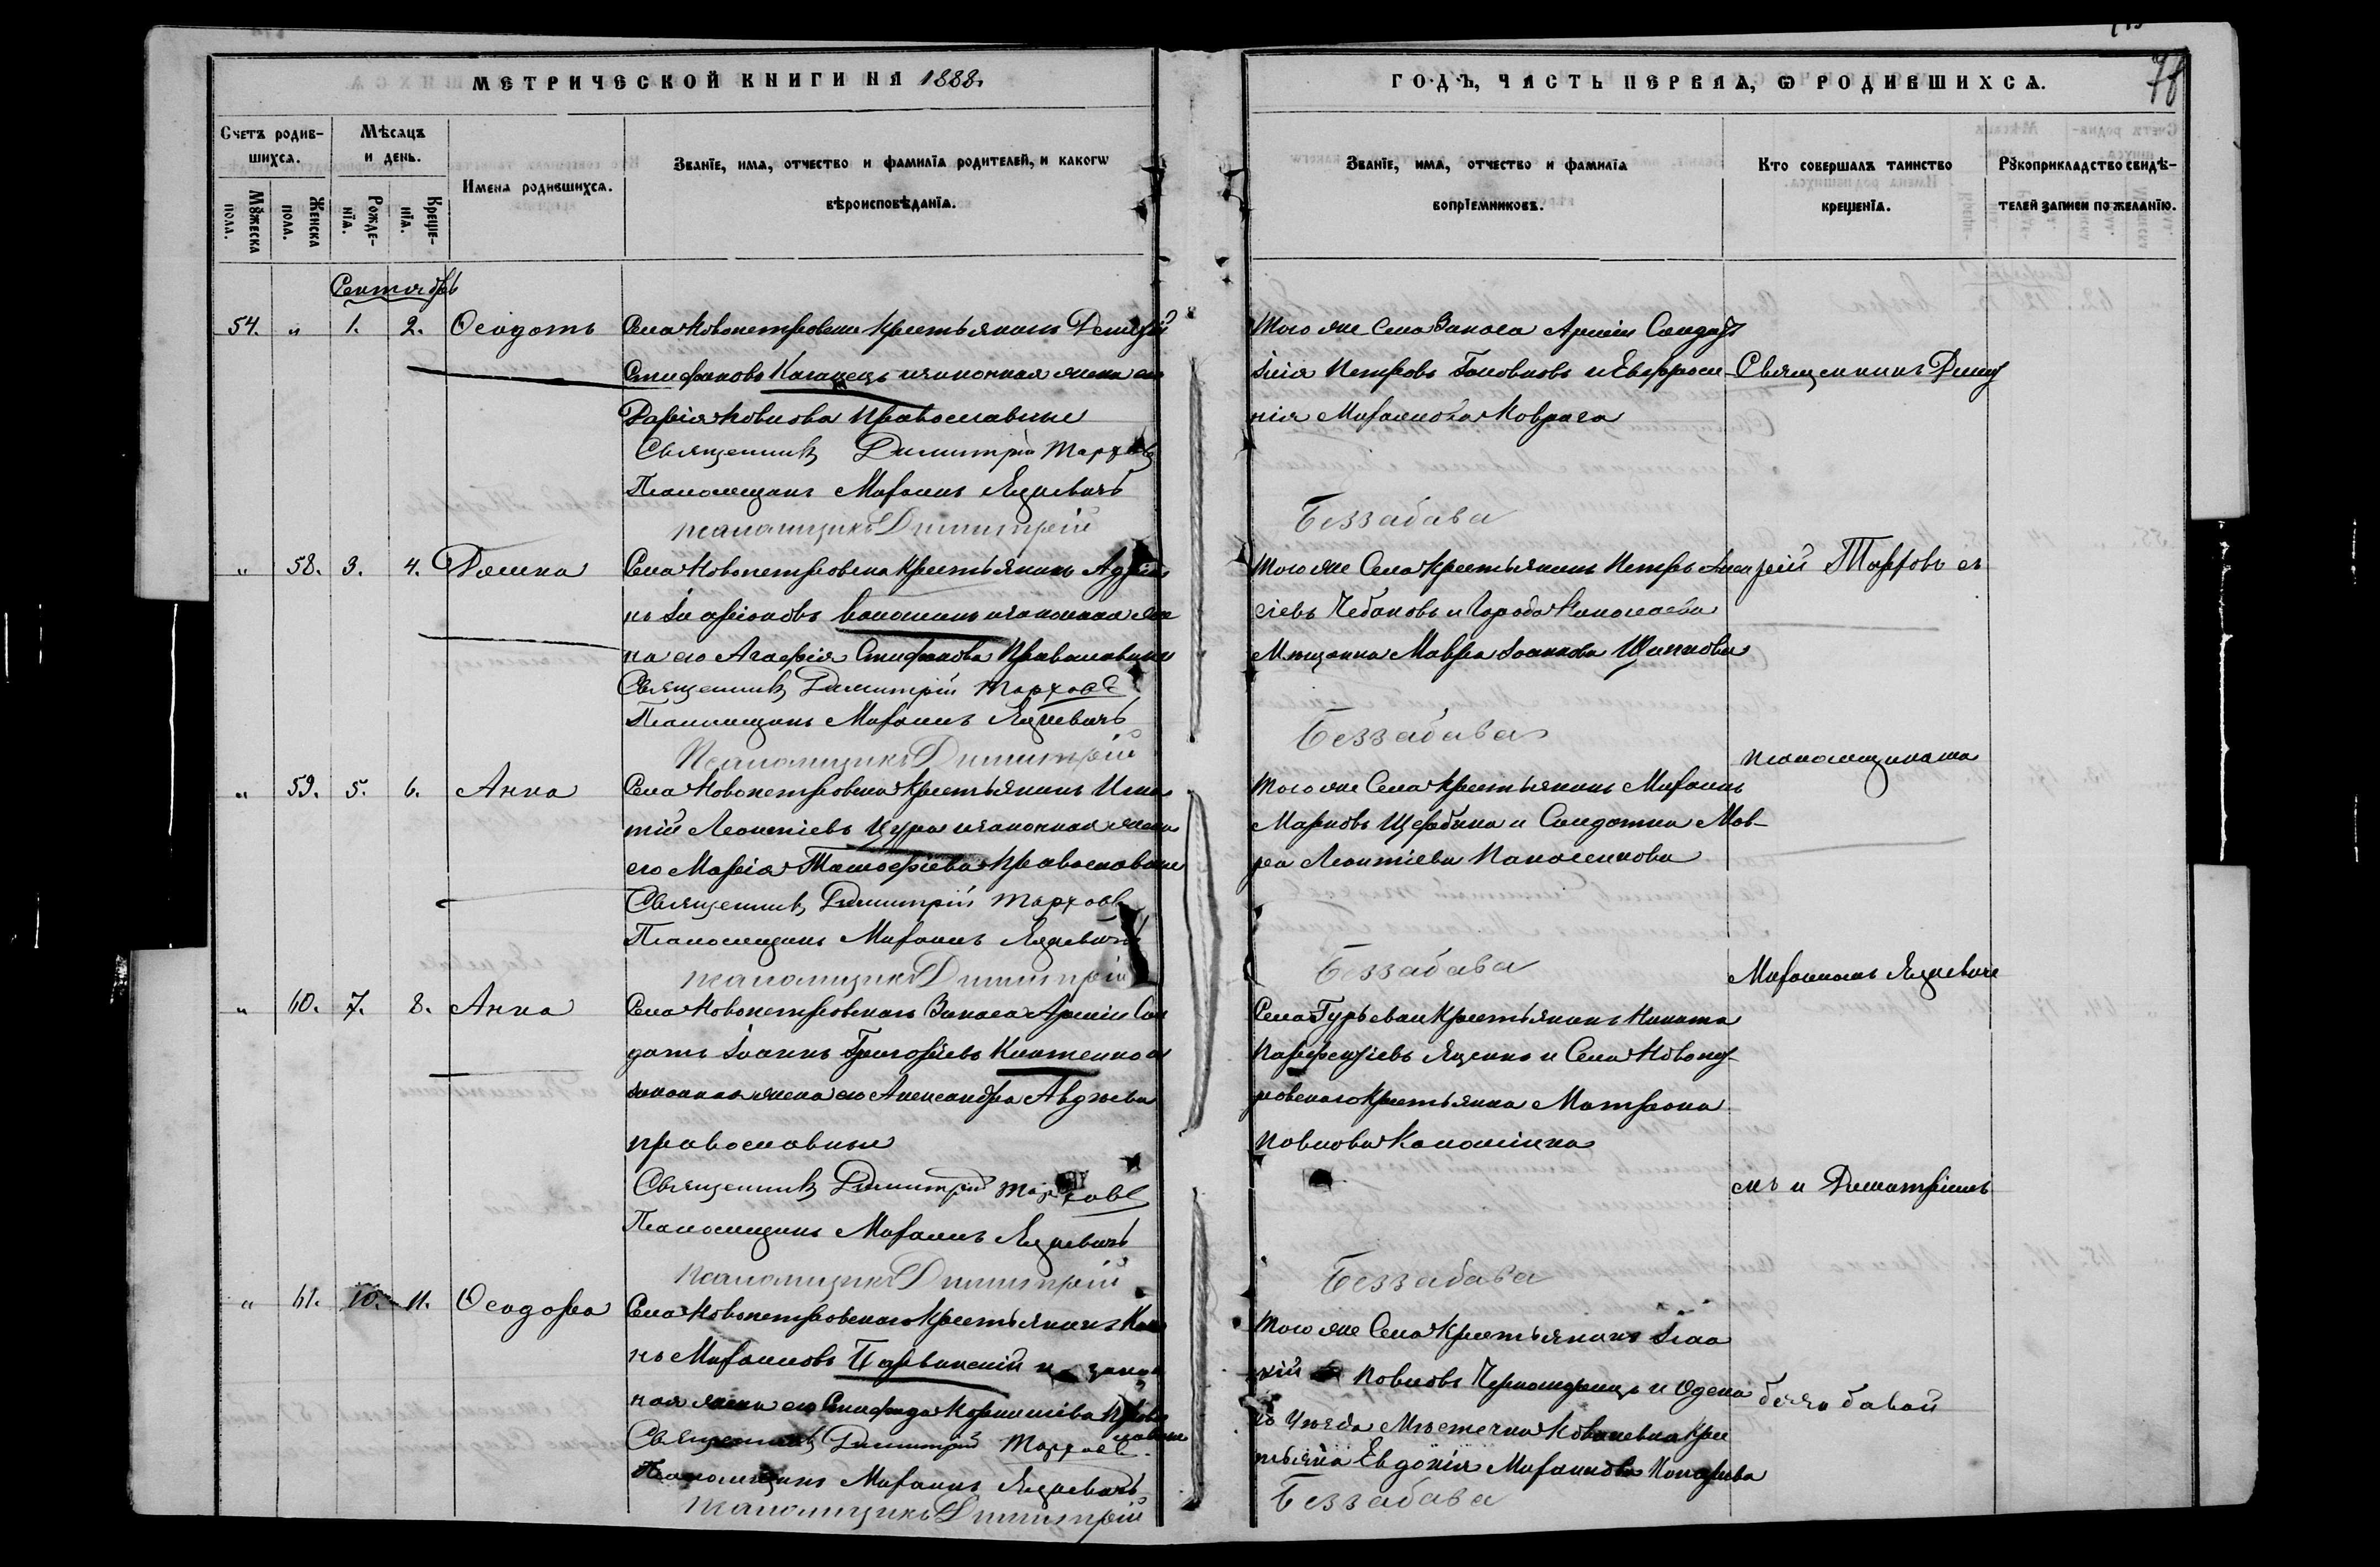 МЕТРИЧЕСКОЙ КНИГИ НА 1888.
ГОДЪ, ЧАСТЬ ПЕРВАѦ, Ѡ РОДИВШИХСѦ.
78
Счетъ родив-
шихсѧ.
Мѣсѧцъ
и день.
Мꙋжеска
пола.
Женска
пола.
Рожде-
нїѧ.
Креще-
нїѧ.
Имена родившихсѧ.
Званїе, имѧ, отчество и фамилїѧ родителей, и какогѡ
вѣроисповѣданїѧ.
Званїе, имѧ, отчество и фамилїѧ
воспрїемниковъ.
Кто совершалъ таинство
крещенїѧ.
Рꙋкоприкладство свидѣ-
телей записи по желанїю.
Сентябрь
54. „ 1. 2. Ѳеодотъ
Села Новопетровки крестьянинъ
Стефановъ и законная жена его
Дарія Павлова православные
Священникъ Димитрій Тарховъ
Псаломщикъ Михаилъ Яцкевичъ
псаломщикъ Димитрій
Того же села запаса арміи солдатъ
Петровъ Головковъ и Евфроси-
нія Михаилова
Беззабава
Священникъ Димит
„ 58. 3. 4.
Села Новопетровска крестьянинъ Адріа
нъ Иларіоновъ и законная же
на его Агафія Стефанова православные
Священникъ Димитрій Тарховъ
Псаломщикъ Михаилъ Яцкевичъ
Псаломщикъ Димитрій
Того же села крестьянинъ Петръ Алек
сіевъ Чебановъ и города Николаева
мѣщанка Мавра Іоаннова
Беззабава
рій Тарховъ съ
псаломщиками
„ 59. 5. 6. Анна
Села Новопетровска крестьянинъ Игна
тій Леонтіевъ Цура и законная жена
его Марія Тимофіева православные
Священникъ Димитрій Тарховъ
Псаломщикъ Михаилъ Яцкевичъ
псаломщикъ Димитрій
Того же села крестьянинъ Михаилъ
Марковъ Щербина и солдатка Мав-
ра Леонтіева
Беззабава
Михаиломъ Яцкевиче
„ 60. 7. 8. Анна
Села Новопетровскаго запаса арміи сол
датъ Іоаннъ Григоріевъ и
законная жена его Александра Авдѣева
православные
Священникъ Димитрій Тарховъ
Псаломщикъ Михаилъ Яцкевичъ
Псаломщикъ Димитрій
Села Гурьевки крестьянинъ Никита
Парфеніевъ Яценко и села Новопет
ровскаго крестьянка Матрона
Павлова
Беззабава
мъ и Димитріемъ
„ 61. 10. 11. Ѳеодора
Села Новопетровскаго крестьянинъ
нъ Михаиловъ и закон
ная жена его Стефанида Корнилиева право
славные
Священникъ Димитрій Тарховъ
Псаломщикъ Михаилъ Яцкевичъ
псаломщикъ Димитрій
Того же села крестьянинъ
кій Павловъ и Одесска
го уѣзда мѣстечка Ковалевка крес
тьянка Евдокія Михаилова
Беззабава
беззабавой